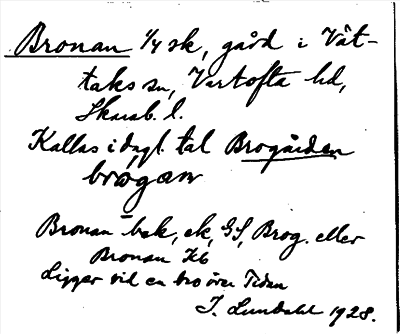 Bronan 1/4 sk, gård i Vät-
taks sn, Vartofta hd,
Skarab. l.
Kallas i dagl. tal Brogården
brogæn
Bronan bek, ek, GS, Brog. eller
Bronan Kb
Ligger vid en bro över Tidan
I. Lundahl 1928.